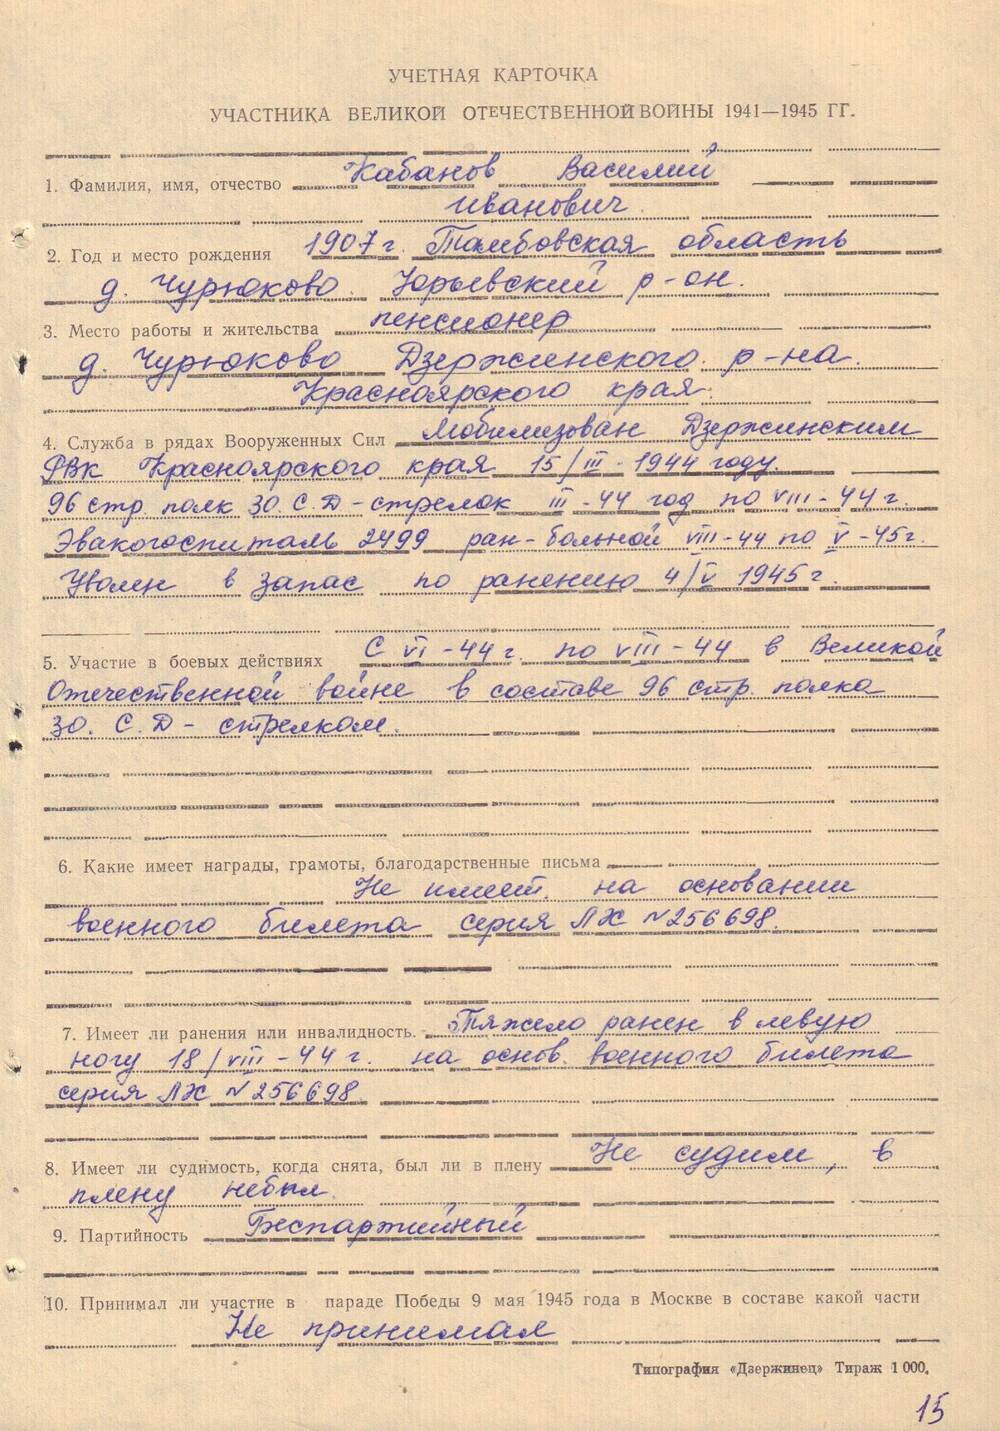 УЧЕТНАЯ КАРТОЧКА
УЧАСТНИКА ВЕЛИКОЙ ОТЕЧЕСТВЕННОЙ ВОЙНЫ 1941—1945 ГГ.
1. Фамилия, имя, отчество Кабанов Василий
Иванович.
2. Год и место рождения 1907 г. Тамбовская область
д. Чурюково. Юрьевский р-он.
3. Место работы и жительства пенсионер
д. Чурюково Дзержинского р-на.
Красноярского края.
4. Служба в рядах Вооруженных Сил Мобилизован Дзержинским
РВК Красноярского края 15/III-1944 году.
96 стр. полк 30. С. Д - стрелок III-44 год по VIII-44 г.
Эвакогоспиталь 2499 ран-больной VIII-44 по V-45 г.
Уволен в запас по ранению 4/V 1945 г.
5. Участие в боевых действиях С VI-44 г. по VIII-44 в Великой
Отечественной войне в составе 96 стр. полка
30. С. Д - стрелком.
6. Какие имеет награды, грамоты, благодарственные письма
Не имеет. на основании
военного билета серия ЛХ №256698.
7. Имеет ли ранения или инвалидность. Тяжело ранен в левую
ногу 18/VIII-44 г. на основ. военного билета
серия ЛХ №256698.
8. Имеет ли судимость, когда снята, был ли в плену Не судим, в
плену небыл.
9. Партийность Беспартийный
10. Принимал ли участие в параде Победы 9 мая 1945 года в Москве в составе какой части
Не принимал
Типография «Дзержинец» Тираж 1 000.
15